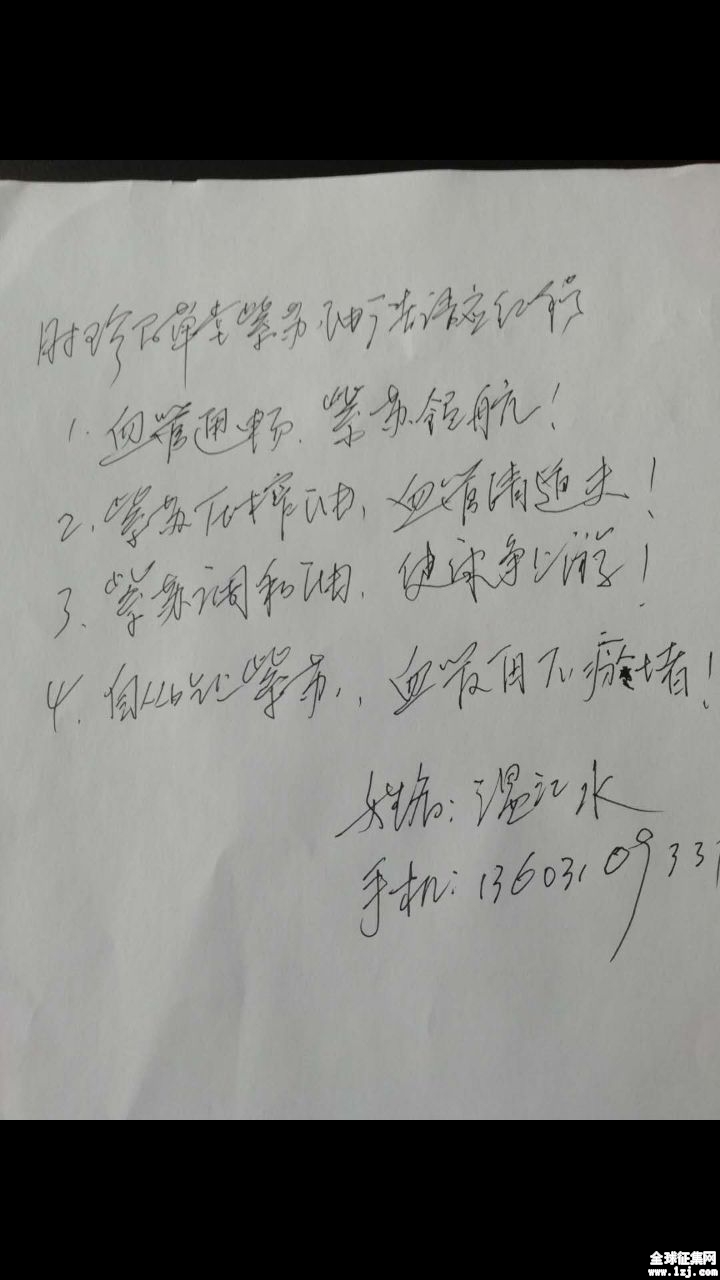 时珍百草堂紫苏油广告语应征稿
1. 血管通畅、紫苏领航!
2、紫苏压榨油、血管清道夫!
3、紫苏调和油、健康争上游!
4、自从吃紫苏,血管再不瘀堵!
姓名:温江水
手机:1360310933
全球征集网
www.1zj.com